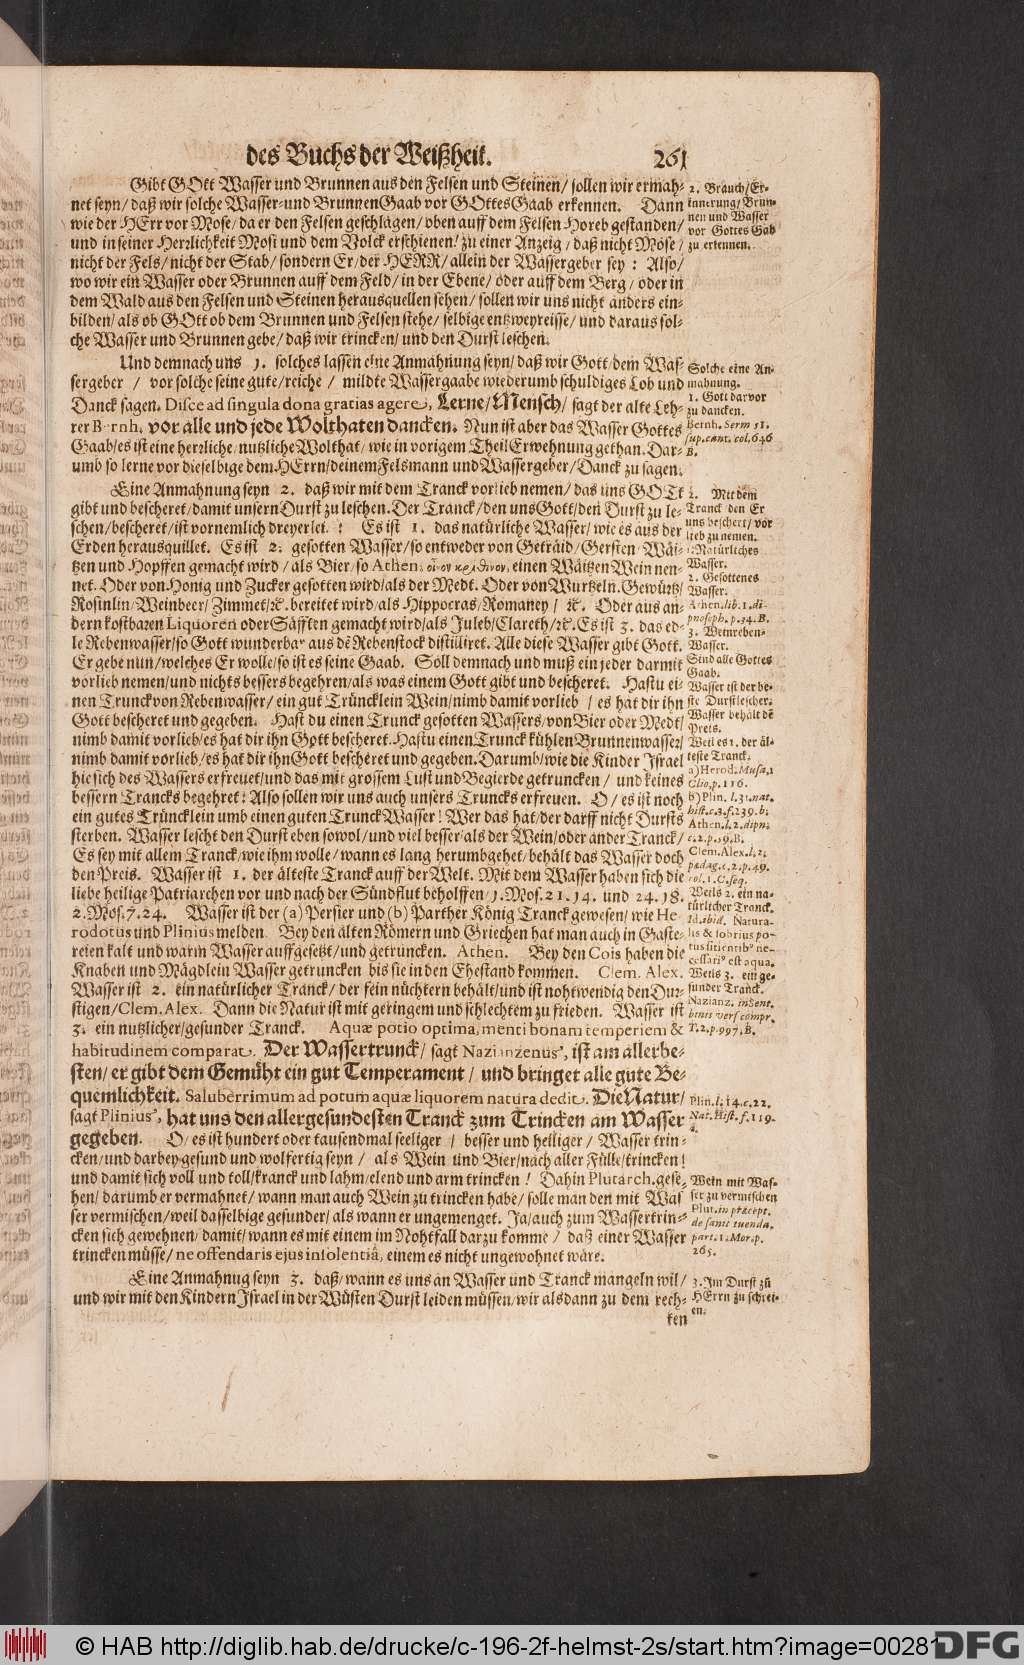 des Buchs der Weißheit. 261
Gibt GOtt Wasser und Brunnen aus den Felsen und Steinen/ sollen wir ermah-
net seyn/ daß wir solche Wasser-und BrunnenGaab vor GOttesGaab erkennen. Dann
wie der HErr vor Mose/ da er den Felsen geschlagen/ oben auff dem Felsen Horeb gestanden/
und in seiner Herzlichkeit Mosi und dem Volck erschienen/ zu einer Anzeig/ daß nicht Mose/
nicht der Fels/ nicht der Stab/ sondern Er/ der HERR/ allein der Wassergeber sey: Also/
wo wir ein Wasser oder Brunnen auff dem Feld/ in der Ebene/ oder auff dem Berg/ oder in
dem Wald aus den Felsen und Steinen herausquellen sehen/ sollen wir uns nicht anders ein-
bilden/ als ob GOtt ob dem Brunnen und Felsen stehe/ selbige entzweyreisse/ und daraus sol-
che Wasser und Brunnen gebe/ daß wir trincken/ und den Durst leschen.
Und demnach uns 1. solches lassen eine Anmahnung seyn/ daß wir Gott/ dem Was-
sergeber/ vor solche seine gute/ reiche/ mildte Wassergaabe wiederumb schuldiges Lob und
Danck sagen. Disce ad singula dona gratias agere, Lerne/ Mensch/ sagt der alte Leh-
rer Bernh. vor alle und jede Wolthaten dancken. Nun ist aber das Wasser Gottes
Gaab/ es ist eine herzliche/ nutzliche Wolthat/ wie in vorigem Theil Erwehnung gethan. Dar-
umb so lerne vor dieselbige dem HErrn/ deinem Felsmann und Wassergeber/ Danck zu sagen.
Eine Anmahnung seyn 2. daß wir mit dem Tranck vorlieb nemen/ das uns GOTt
gibt und bescheret/ damit unsern Durst zu leschen. Der Tranck/ den uns Gott/ den Durst zu le-
schen/ bescheret/ ist vornemlich dreyerley: Es ist 1. das natürliche Wasser/ wie es aus der
Erden herausquillet. Es ist 2. gesotten Wasser/ so entweder von Geträid/ Gersten/ Wäi-
tzen und Hopffen gemacht wird/ als Bier/ so Athen. οἶνον κρίθινον, einen Wäitzen Wein nen-
net. Oder von Honig und Zucker gesotten wird/ als der Medt. Oder von Wurtzeln/ Gewürtz/
Rosinlin/ Weinbeer/ Zimmet/ ꝛc. bereitet wird/ als Hippocras/ Romaney/ ꝛc. Oder aus an-
dern kostbaren Liquoren oder Säfften gemacht wird/ als Juleb/ Clareth/ ꝛc. Es ist 3. das ed-
le Rebenwasser/ so Gott wunderbar aus dē Rebenstock distilliret. Alle diese Wasser gibt Gott.
Er gebe nun/ welches Er wolle/ so ist es seine Gaab. Soll demnach und muß ein jeder darmit
vorlieb nemen/ und nichts bessers begehren/ als was einem Gott gibt und bescheret. Hastu ei-
nen Trunck von Rebenwasser/ ein gut Trüncklein Wein/ nimb damit vorlieb/ es hat dir ihn
Gott bescheret und gegeben. Hast du einen Trunck gesotten Wassers/ von Bier oder Medt/
nimb damit vorlieb/ es hat dir ihn Gott bescheret. Hastu einen Trunck kühlen Brunnenwasser/
nimb damit vorlieb/ es hat dir ihn Gott bescheret und gegeben. Darumb/ wie die Kinder Israel
hie sich des Wassers erfreuet/ und das mit grossem Lust und Begierde getruncken/ und keines
bessern Trancks begehret: Also sollen wir uns auch unsers Truncks erfreuen. O/ es ist noch
ein gutes Trüncklein umb einen guten Trunck Wasser! Wer das hat/ der darff nicht Dursts
sterben. Wasser lescht den Durst eben sowol/ und viel besser/ als der Wein/ oder ander Tranck/
Es sey mit allem Tranck/ wie ihm wolle/ wann es lang herumbgehet/ behält das Wasser doch
den Preis. Wasser ist 1. der älteste Tranck auff der Welt. Mit dem Wasser haben sich die
liebe heilige Patriarchen vor und nach der Sündflut beholffen/ 1. Mos. 21. 14. und 24. 18.
2. Mos. 7. 24. Wasser ist der (a) Persier und (b) Parther König Tranck gewesen/ wie He-
rodotus und Plinius melden. Bey den alten Römern und Griechen hat man auch in Gaste-
reien kalt und warm Wasser auffgesetzt/ und getruncken. Athen. Bey den Cois haben die
Knaben und Mägdlein Wasser getruncken bis sie in den Ehestand kommen. Clem. Alex.
Wasser ist 2. ein natürlicher Tranck/ der fein nüchtern behält/ und ist nohtwendig den Dur-
stigen/ Clem. Alex. Dann die Natur ist mit geringem und schlechtem zu frieden. Wasser ist
3. ein nutzlicher/ gesunder Tranck. Aquæ potio optima, menti bonam temperiem &
habitudinem comparat. Der Wassertrunck/ sagt Nazianzenus, ist am allerbe-
sten/ er gibt dem Gemüht ein gut Temperament/ und bringet alle gute Be-
quemlichkeit. Saluberrimum ad potum aquæ liquorem natura dedit. Die Natur/
sagt Plinius, hat uns den allergesundesten Tranck zum Trincken am Wasser
gegeben. O/ es ist hundert oder tausendmal seeliger/ besser und heiliger/ Wasser trin-
cken/ und darbey gesund und wolfertig seyn/ als Wein und Bier/ nach aller Fülle/ trincken!
und damit sich voll und toll/ kranck und lahm/ elend und arm trincken! Dahin Plutarch. gese-
hen/ darumb er vermahnet/ wann man auch Wein zu trincken habe/ solle man den mit Was
ser vermischen/ weil dasselbige gesunder/ als wann er ungemenget. Ja/ auch zum Wassertrin-
cken sich gewehnen/ damit/ wann es mit einem im Nohtfall darzu komme/ daß einer Wasser
trincken müsse/ ne offendaris ejus insolentiâ, einem es nicht ungewohnet wäre.
Eine Anmahnug seyn 3. daß/ wann es uns an Wasser und Tranck mangeln wil/
und wir mit den Kindern Israel in der Wüsten Durst leiden müssen/ wir alsdann zu dem rech-
ken
2. Brauch/ Er-
innerung/ Brun-
nen und Wasser
vor Gottes Gab
zu erkennen.
Solche eine An-
mahnung.
1. Gott darvor
zu dancken.
Bernh. Serm 51.
sup. cant. col. 646
B.
2. Mit dem
Tranck den Er
uns beschert/ vor
lieb zu nemen.
1. Natürliches
Wasser.
2. Gesottenes
Wasser.
Athen. lib. 1. di-
pnosoph. p. 34. B.
3. Weinreben-
Wasser.
Sind alle Gottes
Gaab.
Wasser ist der be-
ste Durstlescher.
Wasser behält dē
Preis.
Weil es 1. der äl-
teste Tranck.
a) Herod. Musa. 1
Clio. p. 116.
b) Plin. l. 31. nat.
hist. c. 3. f. 239. b.
Athen. l. 2. dipn.
c. 2. p. 39. B.
Clem. Alex. l. 2.
pædag. c. 2. p. 49.
col. 1. C. seq.
Weils 2. ein na-
türlicher Tranck.
Id. ibid. Natura-
lis & sobrius po-
tus sitientib9 ne-
cessari9 est aqua.
Weils 3. ein ge-
sunder Tranck.
Nazianz. in sent.
binis vers. compr.
T. 2. p. 997. B.
Plin. l. 14. c. 22.
Nat. Hist. f. 119.
a.
Wein mit Was-
ser zu vermischen
Plut. in præcept.
de sanit. tuenda.
part. 1. Mor. p.
265.
3. Im Durst zū
HErrn zu schrei-
en.
© HAB http://diglib.hab.de/drucke/c-196-2f-helmst-2s/start.htm?image=00281
DFG